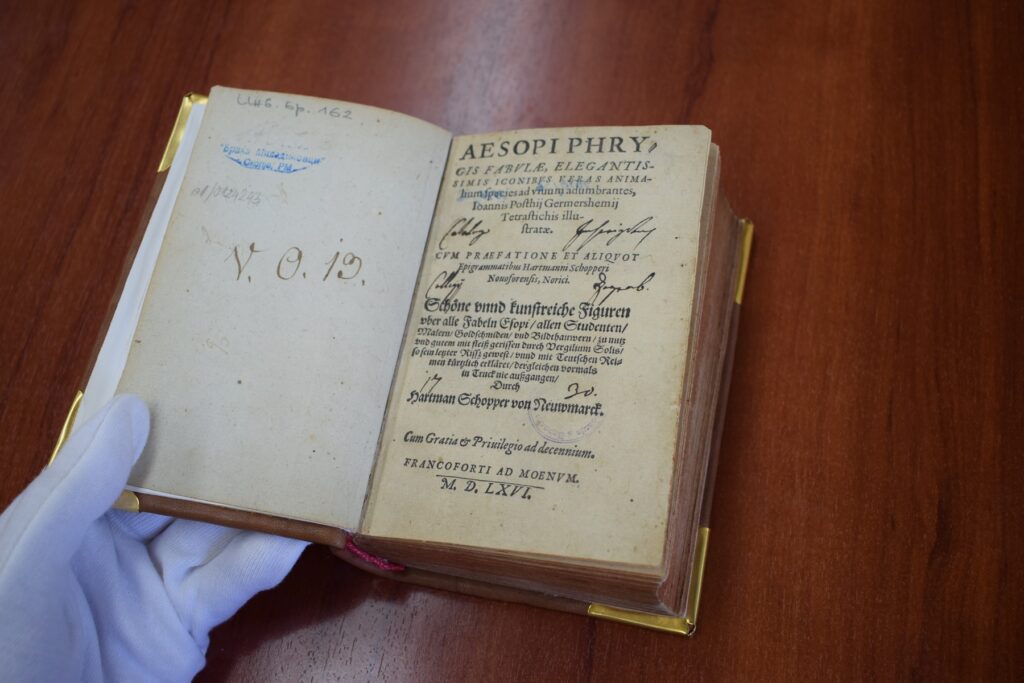 Инб. бр. 162
"Браќа Миладиновци"
V. O. 19.
AESOPI PHRY
GIS FABVLÆ, ELEGANTIS-
SIMIS ICONIBVS VERAS ANIMA-
lium species ad viuum adumbrantes,
Ioannis Posthij Germershemij
Tetrastichis illu-
stratæ.
CVM PRAEFATIONE ET ALIQVOT
Epigrammatibus Hartmanni Schopperi
Nouoforensis, Norici.
Schöne vnnd kunstreiche Figuren
vber alle Fabeln Esopi/ allen Studenten/
Malern/ Goldschmiden/ vnd Bildthauwern/ zu nutz
vnd gutem mit fleiß gerissen durch Vergilium Solis/
so sein letzter Riss gewest/ vnnd mit Teutschen Rei-
men kürtzlich erkläret/ dergleichen vormals
in Truck nie außgangen/
Durch
17 30.
Hartman Schopper von Neuwmarck.
Cum Gratia & Priuilegio ad decennium.
FRANCOFORTI AD MOENVM.
M. D. LXVI.